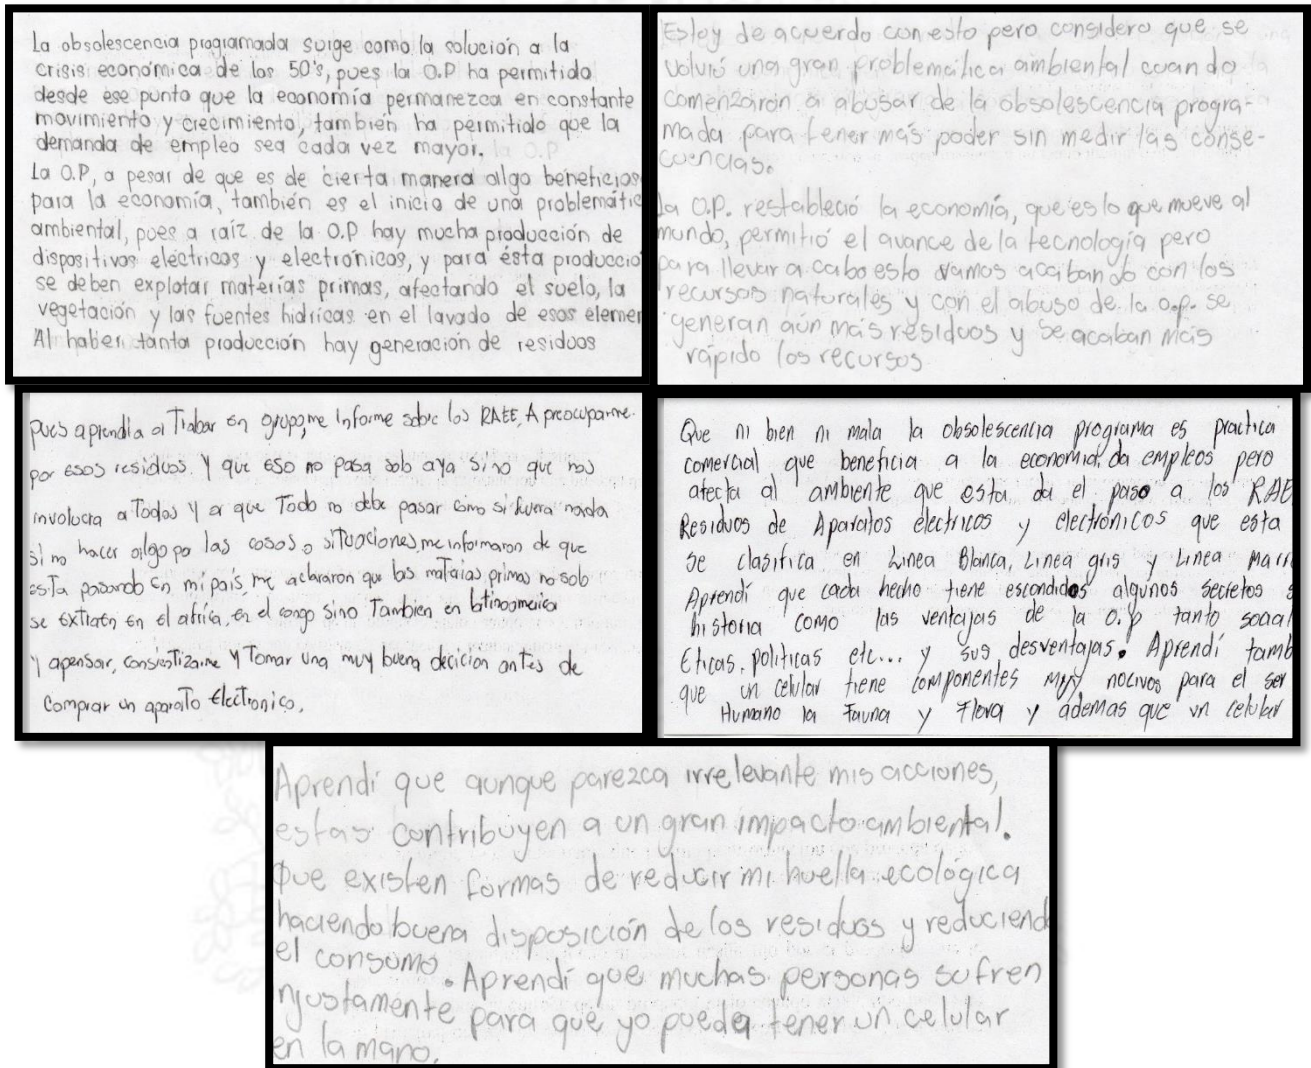 La obsolescencia programada surge como la solución a la
crisis económica de los 50's, pues la O.P ha permitido
desde ese punto que la economía permanezca en constante
movimiento y crecimiento, también ha permitido que la
demanda de empleo sea cada vez mayor.
La O.P, a pesar de que es de cierta manera algo beneficios
para la economía, también es el inicio de una problemátic
ambiental, pues a raíz de la O.P hay mucha producción de
dispositivos eléctricos y electrónicos, y para ésta producció
se deben explotar materias primas, afectando el suelo, la
vegetación y las fuentes hídricas en el lavado de esos elemen
Al haber tanta producción hay generación de residuos
Estoy de acuerdo con esto pero considero que se
volvió una gran problemática ambiental cuando
comenzaron a abusar de la obsolescencia progra-
mada para tener más poder sin medir las conse-
cuencias.
La O.P. restableció la economía, que es lo que mueve al
mundo, permitió el avance de la tecnología pero
para llevar a cabo esto vamos acabando con los
recursos naturales y con el abuso de la o.p. se
generan aún más residuos y se acaban más
rápido los recursos
pues aprendia a Trabar en grupo, me informe sobre los RAEE, A preocuparme
por esos residuos. Y que eso no pasa solo aya sino que nos
involucra a Todos y a que Todo no debe pasar como si fuera nada
si no hacer algo po las cosas o situaciones, me informaron de que
esta pasando en mi país, me aclararon que las mataias primas no solo
se extraen en el africa, en el congo sino Tambien en latinoamerica
Y apensar, consientizarme Y Tomar una muy buena decicion antes de
comprar un aparato Electronico.
Que ni bien ni mala la obsolescencia programa es practica
comercial que beneficia a la economia, da empleos pero
afecta al ambiente que esta da el paso a los RAE
Residuos de Aparatos electricos y electrónicos que esta
se clasifica en Linea Blanca, Linea gris y Linea marr
Aprendí que cada hecho tiene escondidos algunos secretos s
historia como las ventajas de la o.p tanto social
Eticas, politicas etc... y sus desventajas. Aprendí tamb
que un celular tiene componentes muy nocivos para el ser
Humano la Fauna y Flora y ademas que un celular
Aprendí que aunque parezca irrelevante mis acciones,
estas contribuyen a un gran impacto ambiental.
Que existen formas de reducir mi huella ecológica
haciendo buena disposición de los residuos y reduciend
el consumo. Aprendí que muchas personas sufren
njustamente para que yo pueda tener un celular
en la mano.